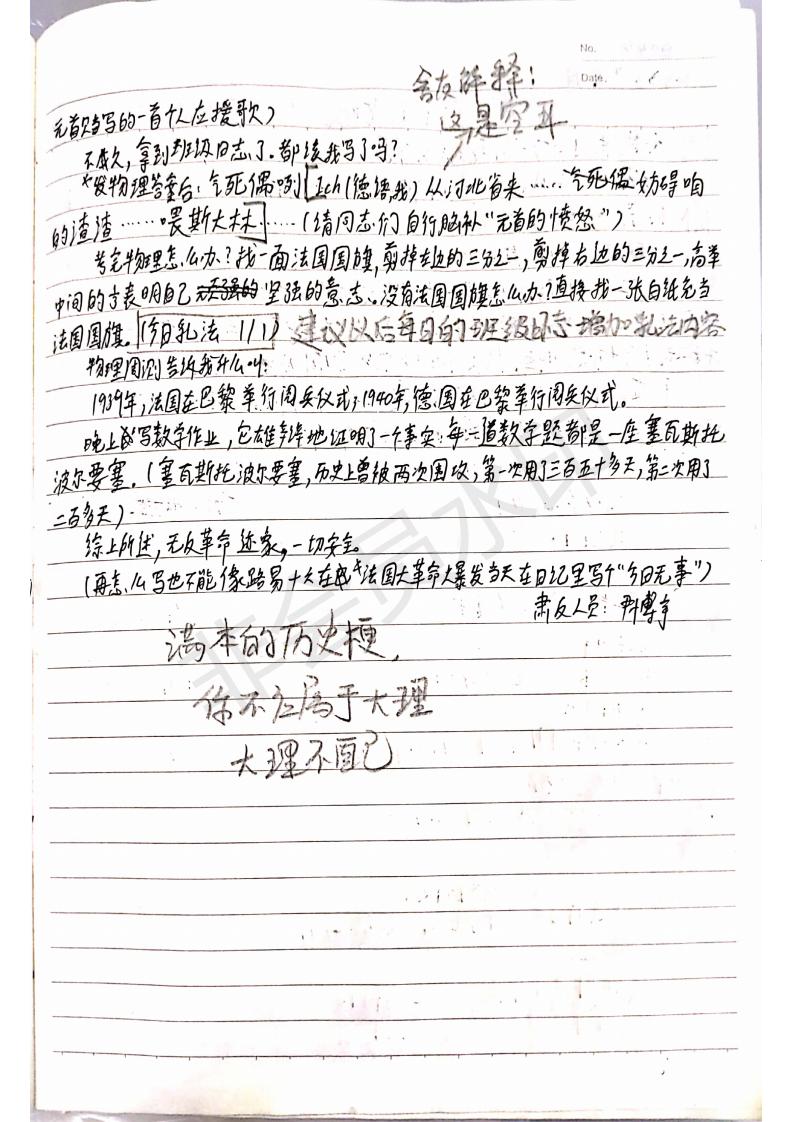 No.
Date.
舍友解释：
这是空耳
元首只当写的一首个人应援歌）
不感久，拿到班级日志了。都该我写了吗？
发物理答案后：气死偶咧[Ich（德语，我）从河北省来……气死偶 妨碍咱
的渣渣……喂斯大林]……（请同志们自行脑补“元首的愤怒”）
考完物理怎么办？找一面法国国旗，剪掉左边的三分之一，剪掉右边的三分之一，高举
中间的方表明自己坚强的意志。没有法国国旗怎么办？直接找一张白纸充当
法国国旗。（今日乳法 1/1） 建议以后每日的班级日志增加乳法内容
物理周测告诉我什么叫：
1939年，法国在巴黎举行阅兵仪式；1940年，德国在巴黎举行阅兵仪式。
晚上写数学作业，它雄辩地证明了一个事实：每一道数学题都是一座塞瓦斯托
波尔要塞。（塞瓦斯托波尔要塞，历史上曾被两次围攻，第一次用了三百五十多天，第二次用了
二百多天）
综上所述，无反革命迹象，一切安全。
（再怎么写也不能像路易十六在法国大革命爆发当天在日记里写个“今日无事”）
肃反人员：
满本的历史梗，
你不应属于大理
大理不配